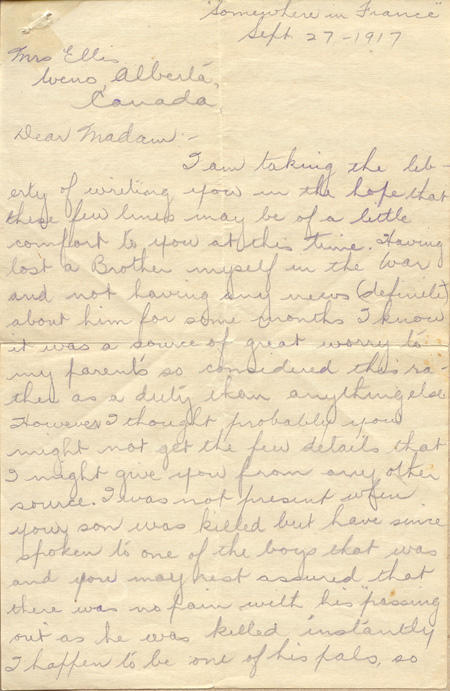 "Somewhere in France"
Sept 27-1917
Mrs Ellis
Weno, Alberta,
Canada
Dear Madam:-
I am taking the lib-
erty of writing you in the hope that
these few lines may be of a little
comfort to you at this time. Having
lost a Brother myself in the War
and not having any news (definite)
about him for some months I know
it was a source of great worry to
my parents so considered this ra-
ther as a duty than anything else
However I thought probably you
might not get the few details that
I might give you from any other
source. I was not present when
your son was killed but have since
spoken to one of the boys that was
and you may rest assured that
there was no pain with his passing
out as he was killed instantly
I happen to be one of his pals, so